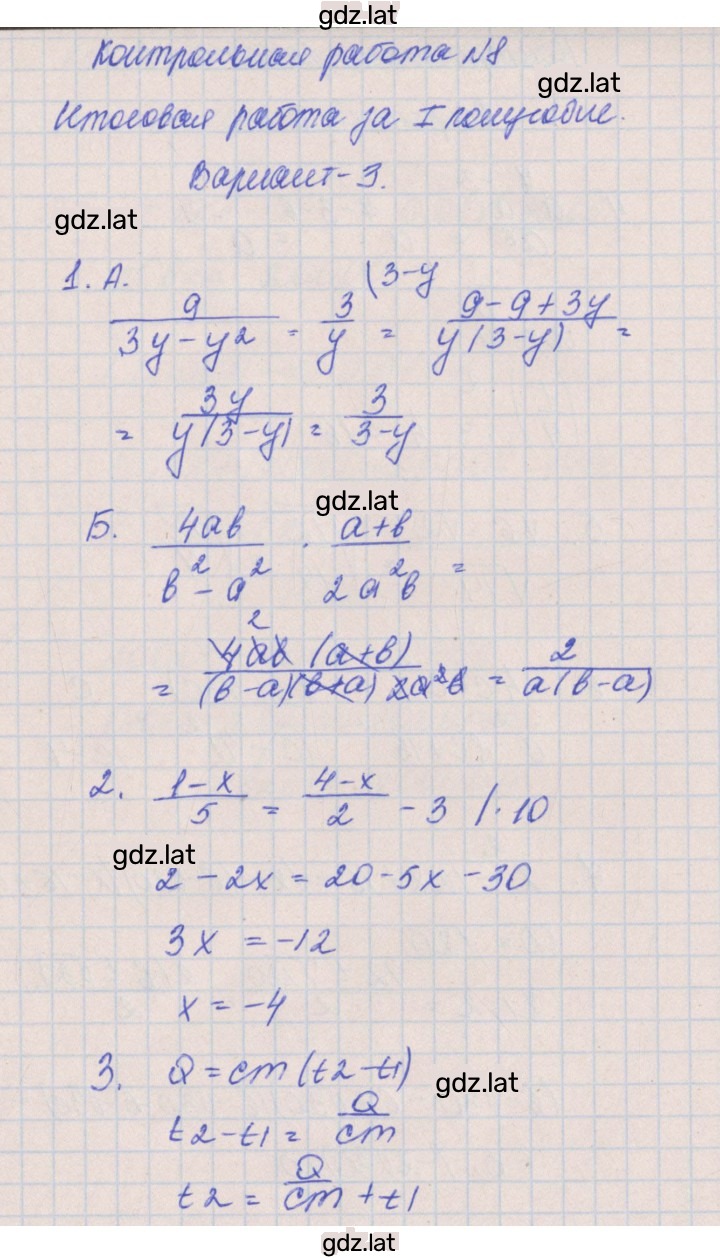 gdz.lat
Контрольная работа №8
gdz.lat
Итоговая работа за I полугодие.
Вариант-3.
gdz.lat
1. А. 9/(3y-y²) - 3/y (3-y = (9-9+3y)/(y(3-y)) =
= 3y/(y(3-y)) = 3/(3-y)
gdz.lat
Б. 4ab/(b²-a²) · (a+b)/(2a²b) =
2
= 4ab(a+b)/((b-a)(b+a)2a²b) = 2/(a(b-a))
2. (1-x)/5 = (4-x)/2 - 3 /·10
gdz.lat
2-2x = 20-5x-30
3x = -12
x = -4
3. Q = cm(t2-t1)
gdz.lat
t2-t1 = Q/cm
t2 = Q/cm + t1
gdz.lat